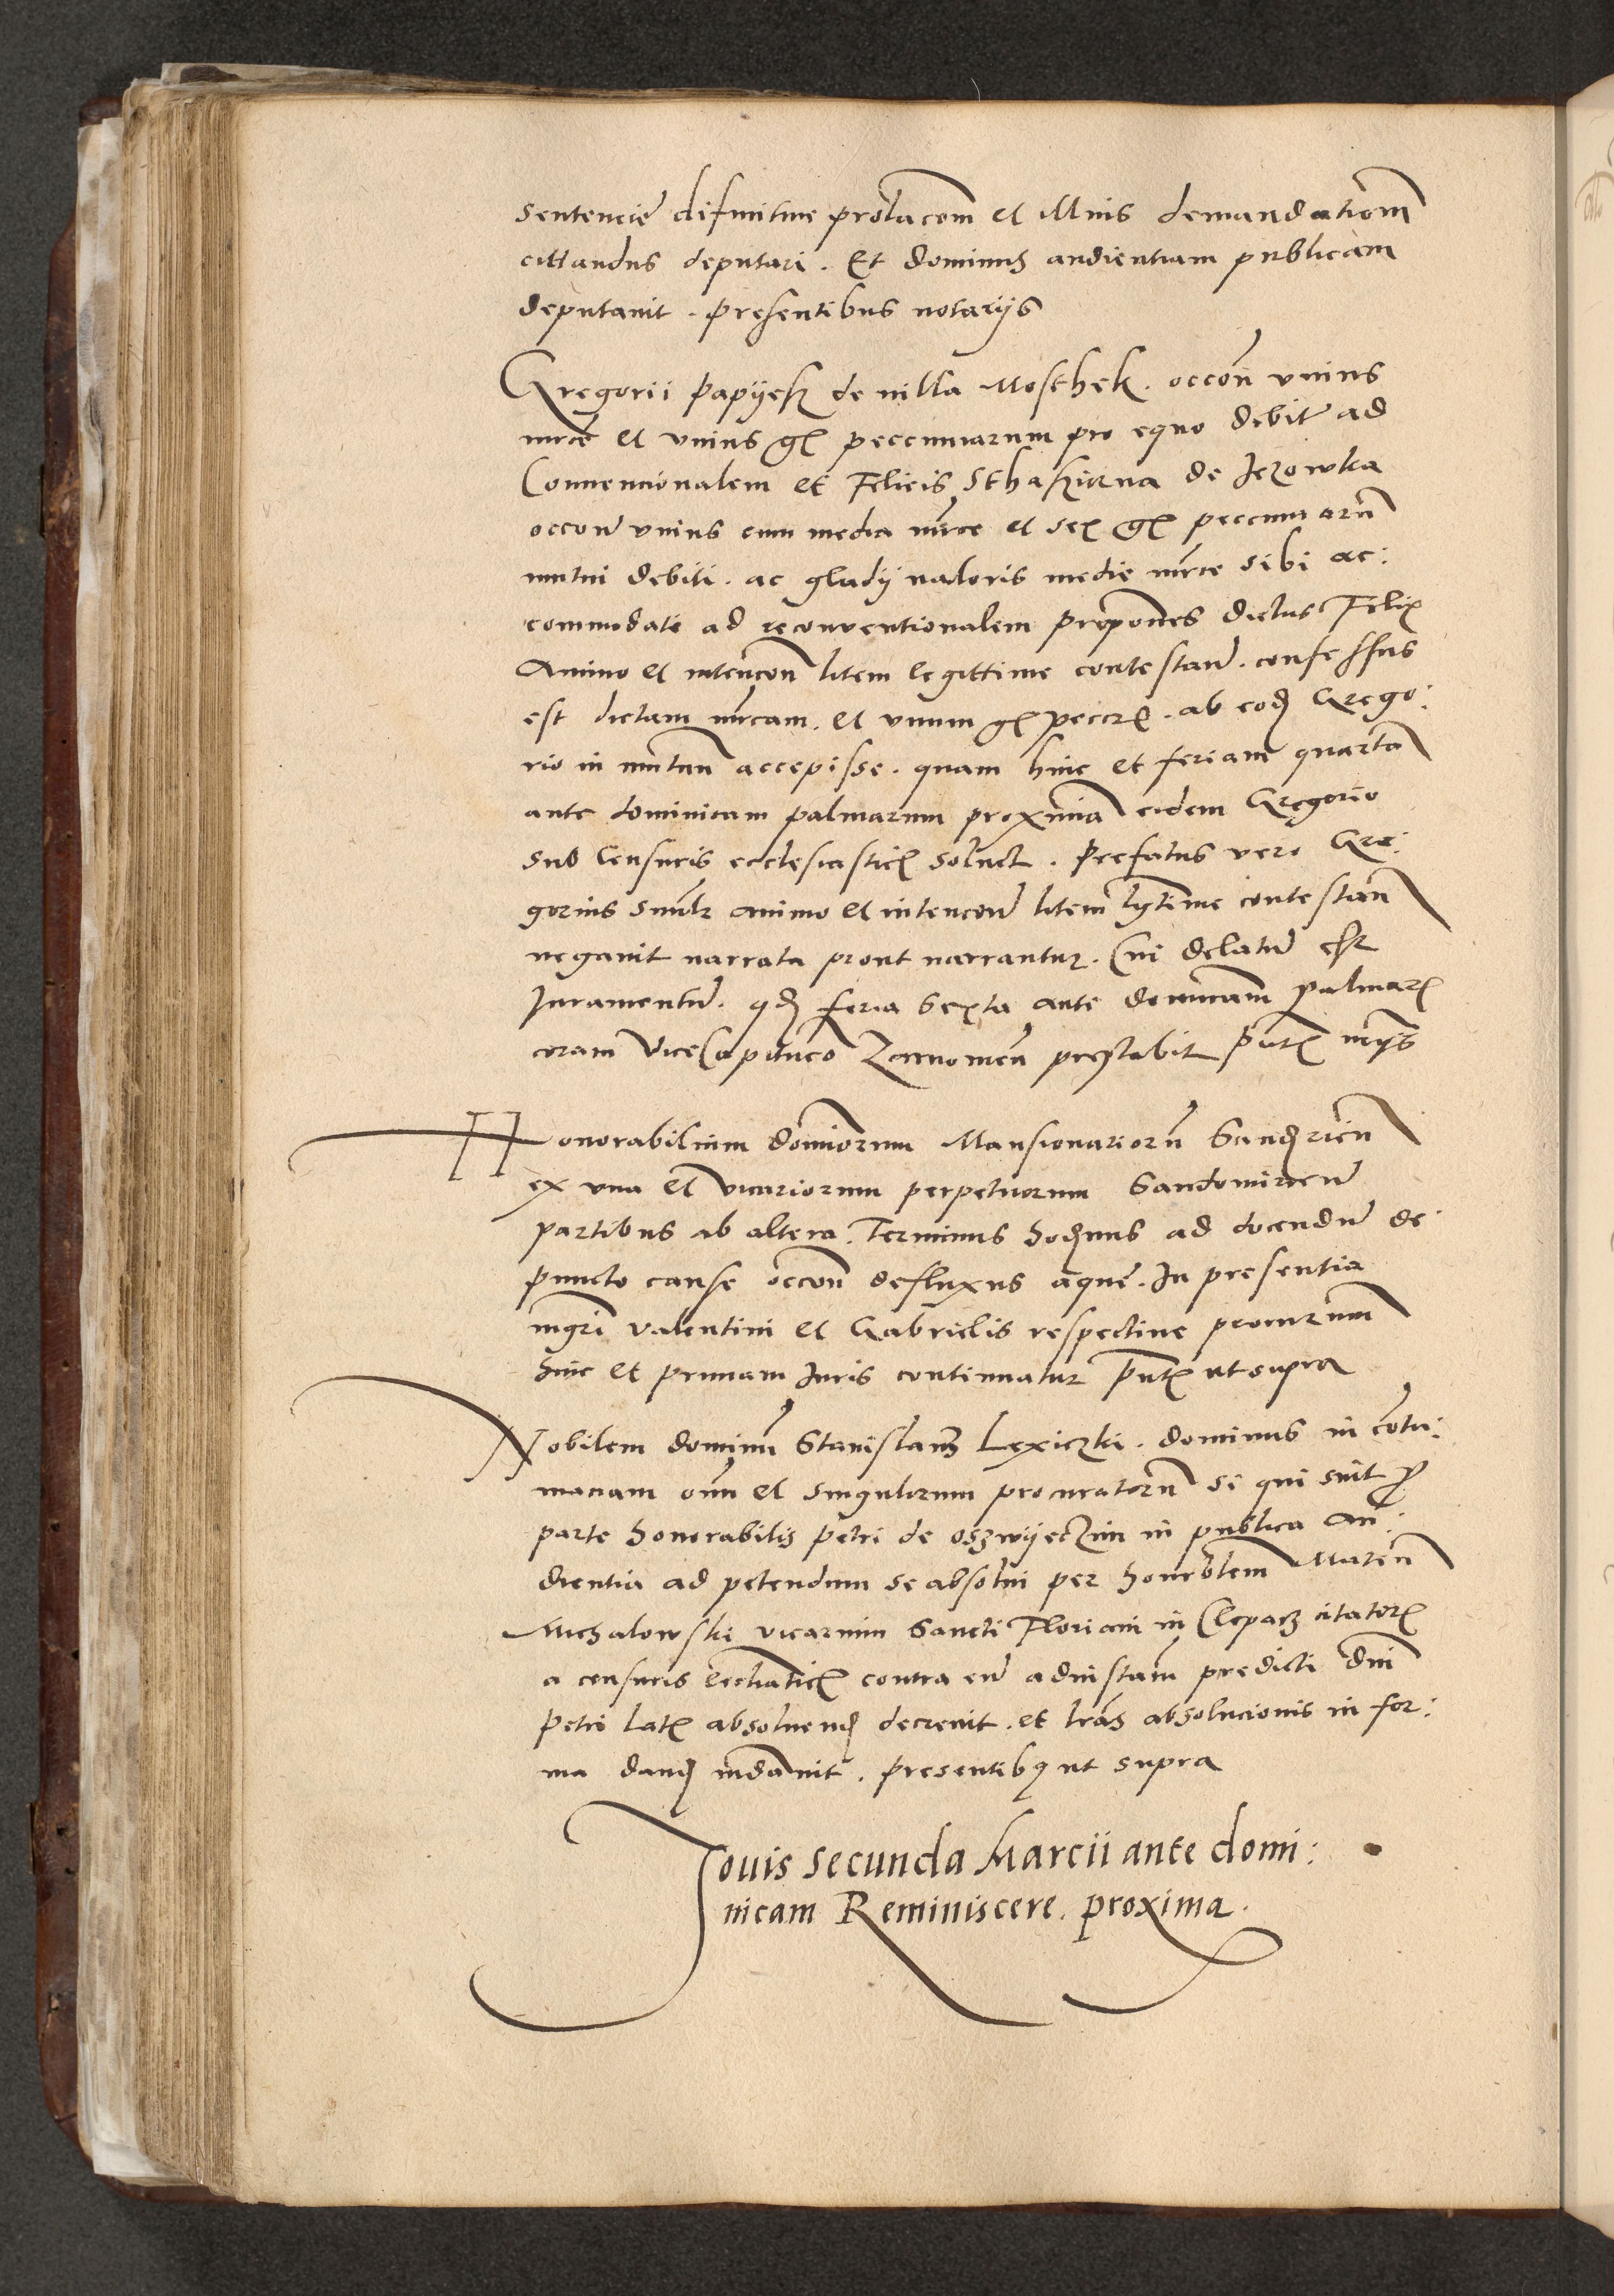 sentencie difinitiue prolacōem et illius demandationem
cittandus deputari . Et dominus audientiam publicam
deputauit . presentibus notarijs
Gregorii Papijesk de uilla Mosthek . occōn vnius
mrce et vnius gr peccuniarum pro equo debit ad
Conuencionalem et Felicis de Jezowka
occōn vnius cum media mrce et sex gr peccuniarū
mutui debiti . ac gladij ualoris medie mrce sibi ac:
commodati ad reconventionalem propōnes dictus Felix
Animo et intencōn litem legittime contestan . confessus
est dictam mrcam . et vnum gr peccre . ab eod Grego:
rio in mutuū accepisse . quam hinc et feriam quarta
ante dominicam palmarum proxima eidem Gregorio
sub Censuris ecclesiastic soluet . Prefatus vero Gre:
gorius simlr animo et intencōn litem lgtime contestan
negauit narrata prout narrantur . Cui delatū est
Juramentū . qd feria sexta ante dominicam palmar
coram ViceCapitneo Zarnowien prestabit pntt nrijs
Honorabilium dominorum Mansionariorū Sandzicen
ex vna et vicariorum perpetuorum Sandomirien
partibus ab altera . Terminus hodiernus ad docendū de
puncto cause occōn defluxus aque . In presentia
mgri Valentini et Gabrielis respectiue procurum
hinc et primam Juris continuatur pntt ut supra
Nobilem dominū Stanislaus Lexiczki . dominus in cōtu:
maciam oīm et singulorum procuratorū si qui sint pro
parte honorabilis Petri de Oszwijeczim in publica Au:
dientia ad petendum se absolui per honorblem Maten
Michalowski vicarium Sancti Floriani in Clepar citator
a censuris eccliastic contra eū ad instam predicti dni
Petri lat absoluend decreuit . et lras absolucionis in for:
ma dand mdauit . Presentibus ut supra
Jouis secunda Marcii ante domi:
nicam Reminiscere . proxima .